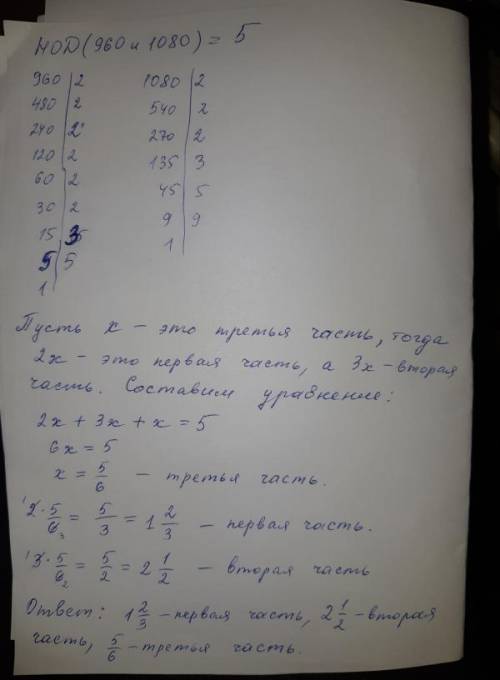 НОД (960 и 1080) = 5
960 | 2 1080 | 2
480 | 2 540 | 2
240 | 2 270 | 2
120 | 2 135 | 3
60 | 2 45 | 5
30 | 2 9 | 9
15 | 3 1
5 | 5
1
Пусть x – это третья часть, тогда
2x – это первая часть, а 3x – вторая
часть. Составим уравнение:
2x + 3x + x = 5
6x = 5
x = 5/6 – третья часть.
2 · 5/6 = 5/3 = 1 2/3 – первая часть.
3 · 5/6 = 5/2 = 2 1/2 – вторая часть
Ответ: 1 2/3 – первая часть, 2 1/2 – вторая
часть, 5/6 – третья часть.